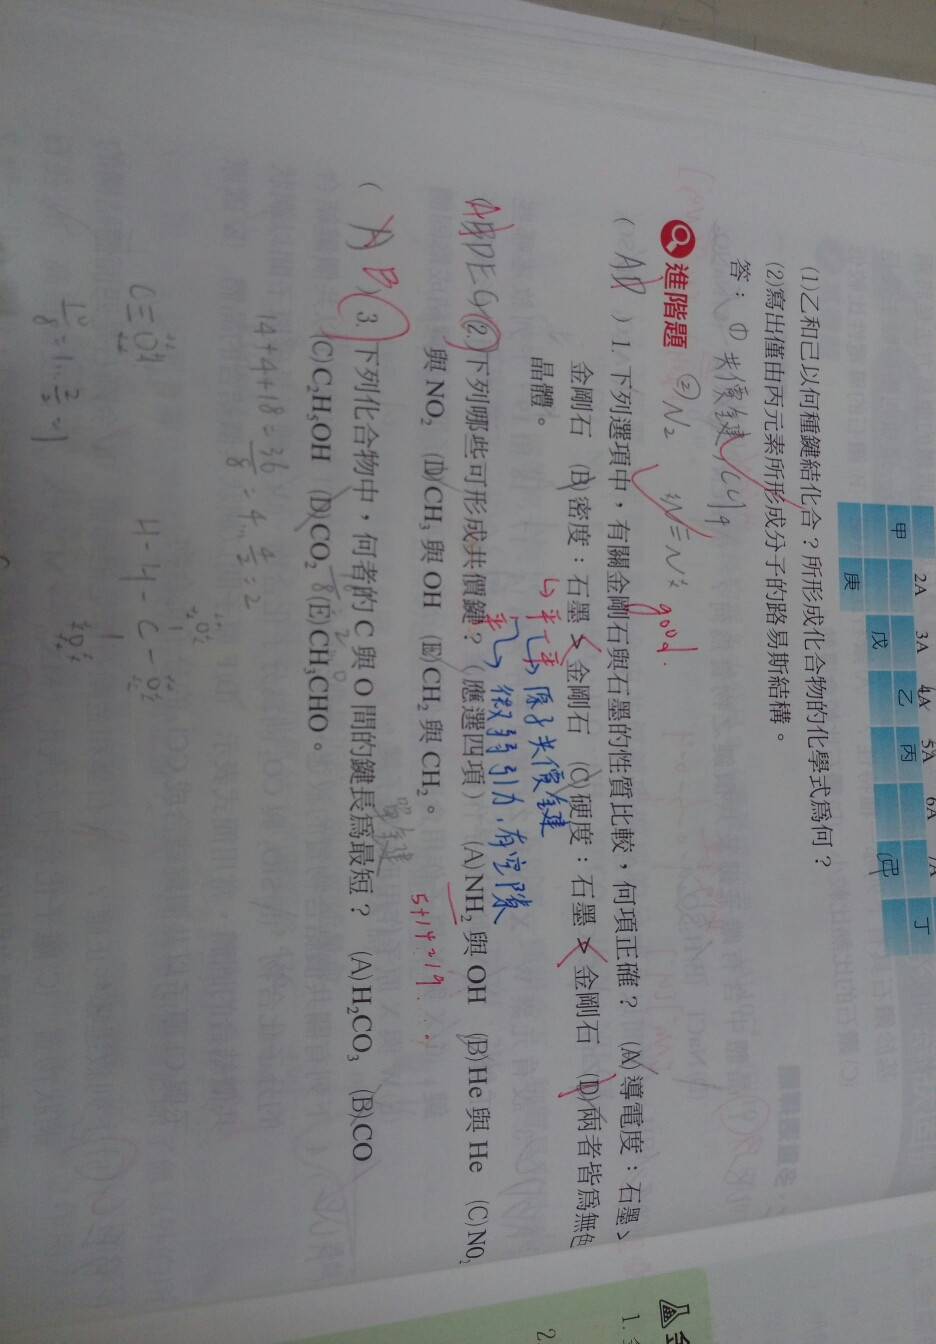 2A 3A 4A 5A 6A 7A
甲 丁
乙 丙
戊 己
庚
(1)乙和己以何種鍵結化合？所形成化合物的化學式為何？
(2)寫出僅由丙元素所形成分子的路易斯結構。
答： ① 共價鍵, CCl4
② N2
進階題
good.
( AD ) 1. 下列選項中，有關金剛石與石墨的性質比較，何項正確？ (A)導電度：石墨＞
金剛石 (B)密度：石墨＞金剛石 (C)硬度：石墨＞金剛石 (D)兩者皆為無色
晶體。
原子共價鍵
微弱引力，有空隙
ADE 2. 下列哪些可形成共價鍵？（應選四項） (A)NH2與OH (B)He與He (C)NO2
與NO2 (D)CH3與OH (E)CH2與CH2。
5+14=19
( A B 3. 下列化合物中，何者的C與O間的鍵長為最短？ (A)H2CO3 (B)CO
(C)C2H5OH (D)CO2 (E)CH3CHO。
14+4+18=36